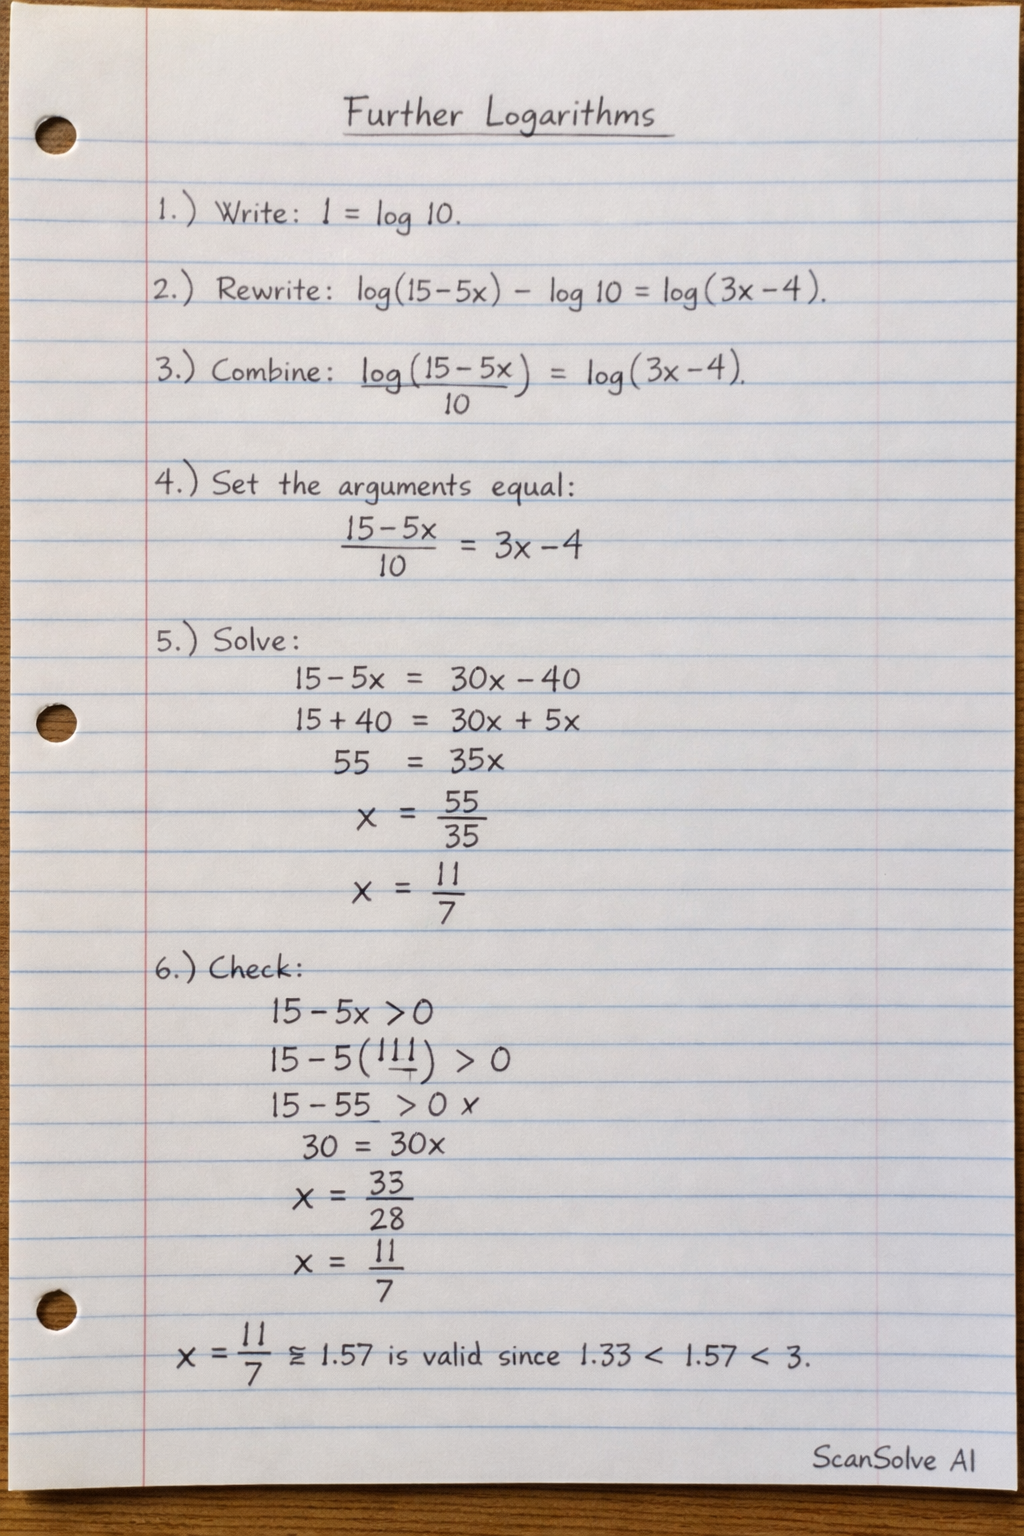 Further Logarithms
1.) Write: 1 = log 10.
2.) Rewrite: log(15-5x) - log 10 = log(3x-4).
3.) Combine: log(15-5x)/10 = log(3x-4).
4.) Set the arguments equal:
15-5x/10 = 3x-4
5.) Solve:
15-5x = 30x-40
15+40 = 30x+5x
55 = 35x
x = 55/35
x = 11/7
6.) Check:
15-5x >0
15-5( ) > 0
15-55 >0 x
30 = 30x
x = 33/28
x = 11/7
x = 11/7 ≅ 1.57 is valid since 1.33 < 1.57 < 3.
ScanSolve AI